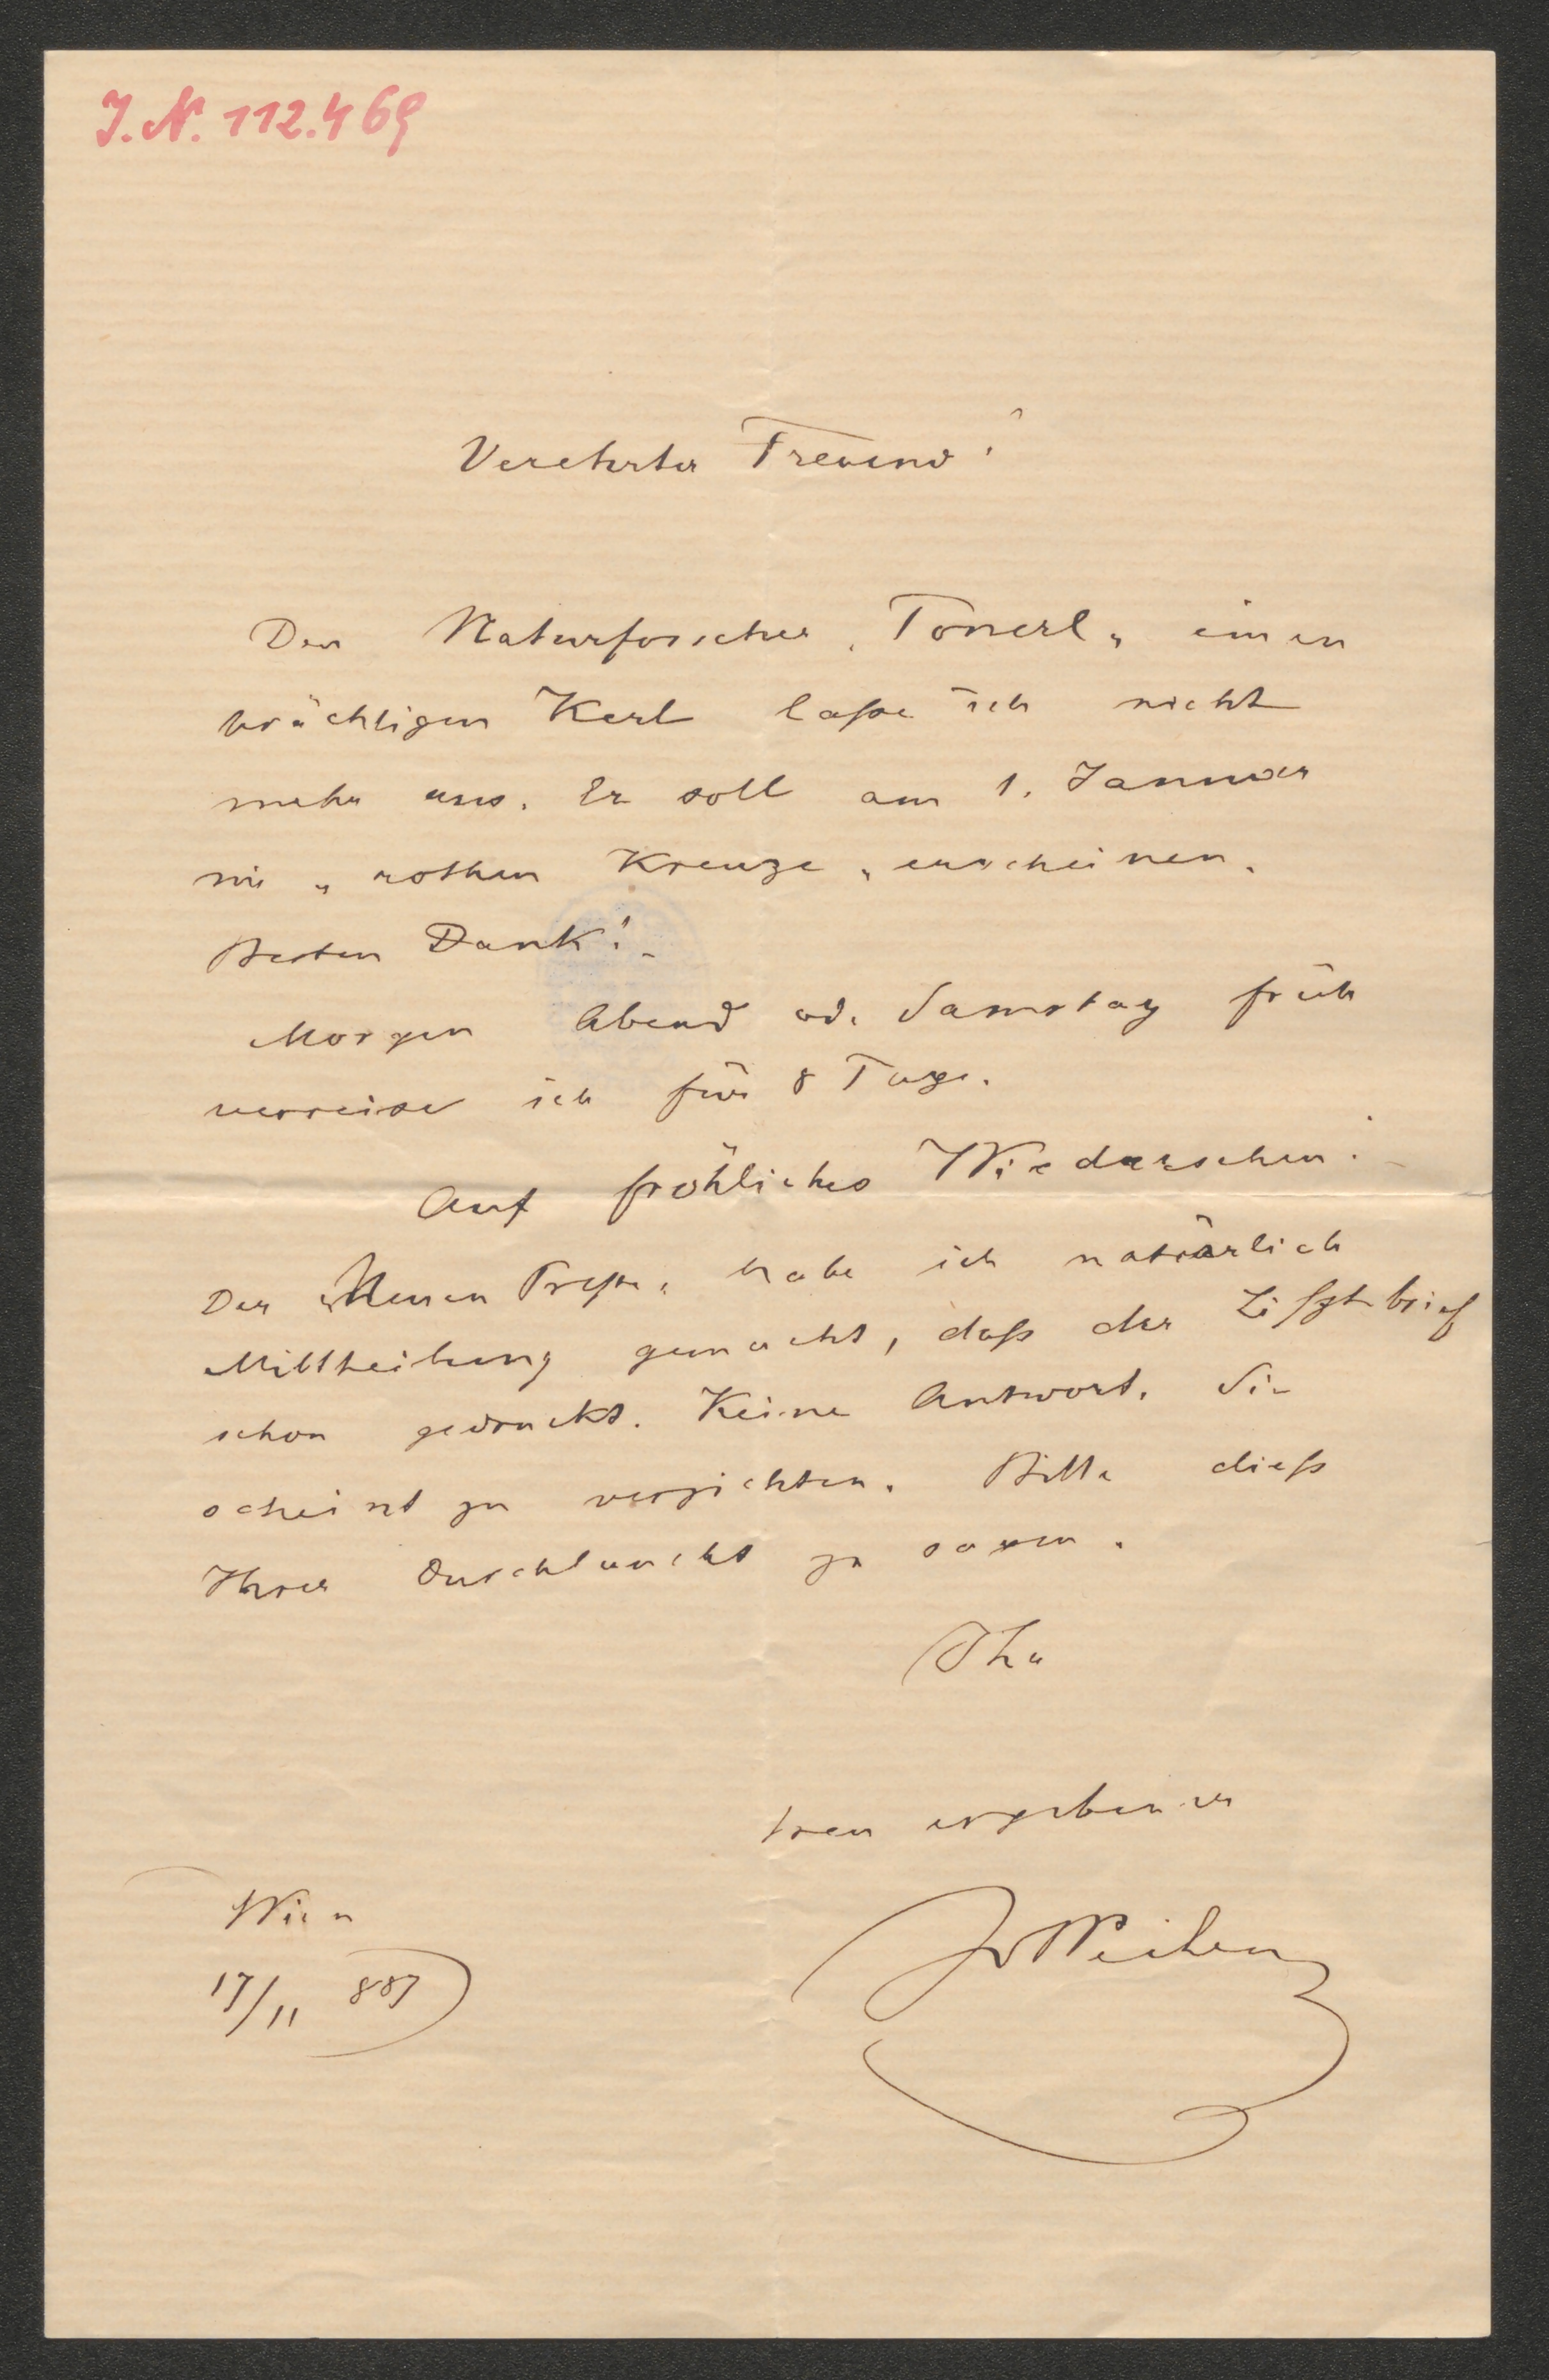 J. N. 112.469
Verehrter Freund!
Den Naturforscher „Tonerl“ einen
prächtigen Kerl lasse ich nicht
mehr aus. Er soll am 1. Januar
im „rothen Kreuze“ erscheinen.
Besten Dank!
Morgen Abend od. Samstag früh
verreise ich für 8 Tage.
Auf fröhliches Wiedersehen!
Der „Neuen Presse“ habe ich natürlich
Mittheilung gemacht, daß der Lißztbrief
schon gedruckt. Keine Antwort. Sie
scheint zu verzichten. Bitte dieß
Ihrer Durchlaucht zu sagen.
Ihr
treu ergebener
JvWeilen
Wien
17/11 887